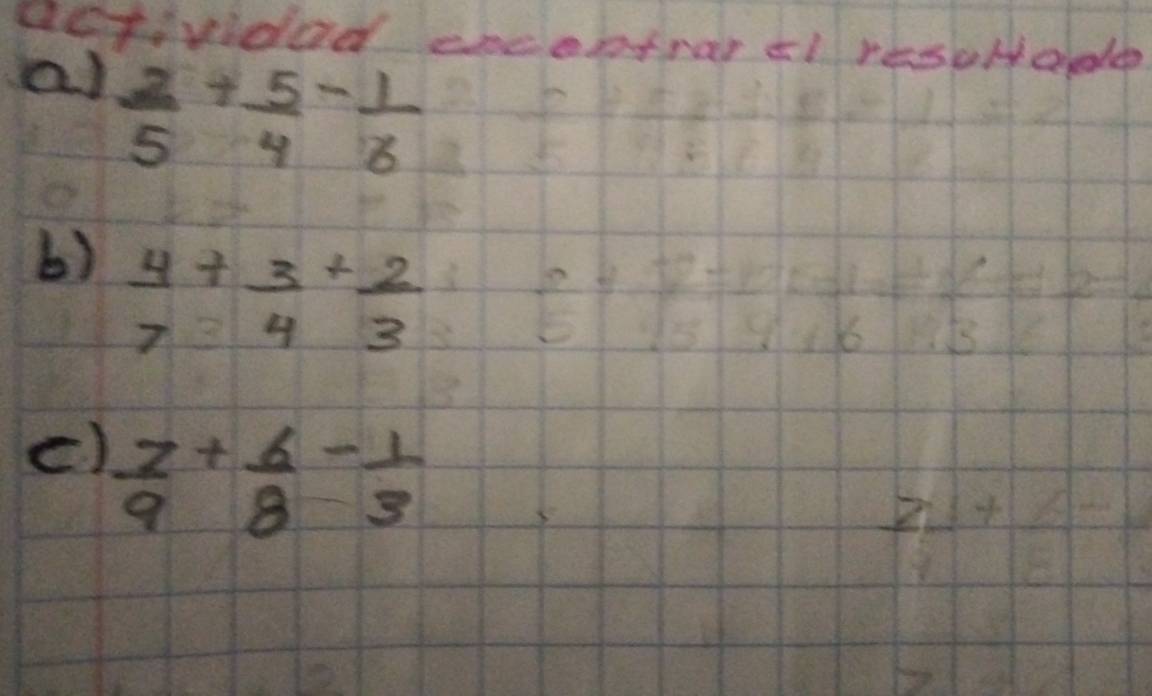 actividad encontrar el resultado
a) 2/5 + 5/4 - 1/8
b) 4/7 + 3/4 + 2/3
c) 7/9 + 6/8 - 1/3